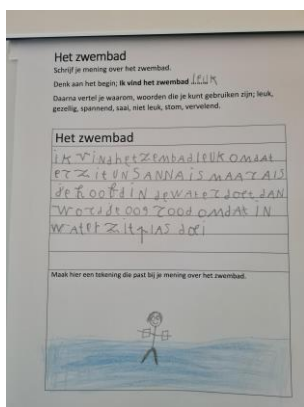 Het zwembad
Schrijf je mening over het zwembad.
Denk aan het begin; Ik vind het zwembad leuk
Daarna vertel je waarom, woorden die je kunt gebruiken zijn; leuk,
gezellig, spannend, saai, niet leuk, stom, vervelend.
Het zwembad
ik vind het zembad leuk omdat
er zit UN SANNA is maar als
de hoofd IN de water doet dan
wordt oog rood omdat IN
water zit plas doei
Maak hier een tekening die past bij je mening over het zwembad.